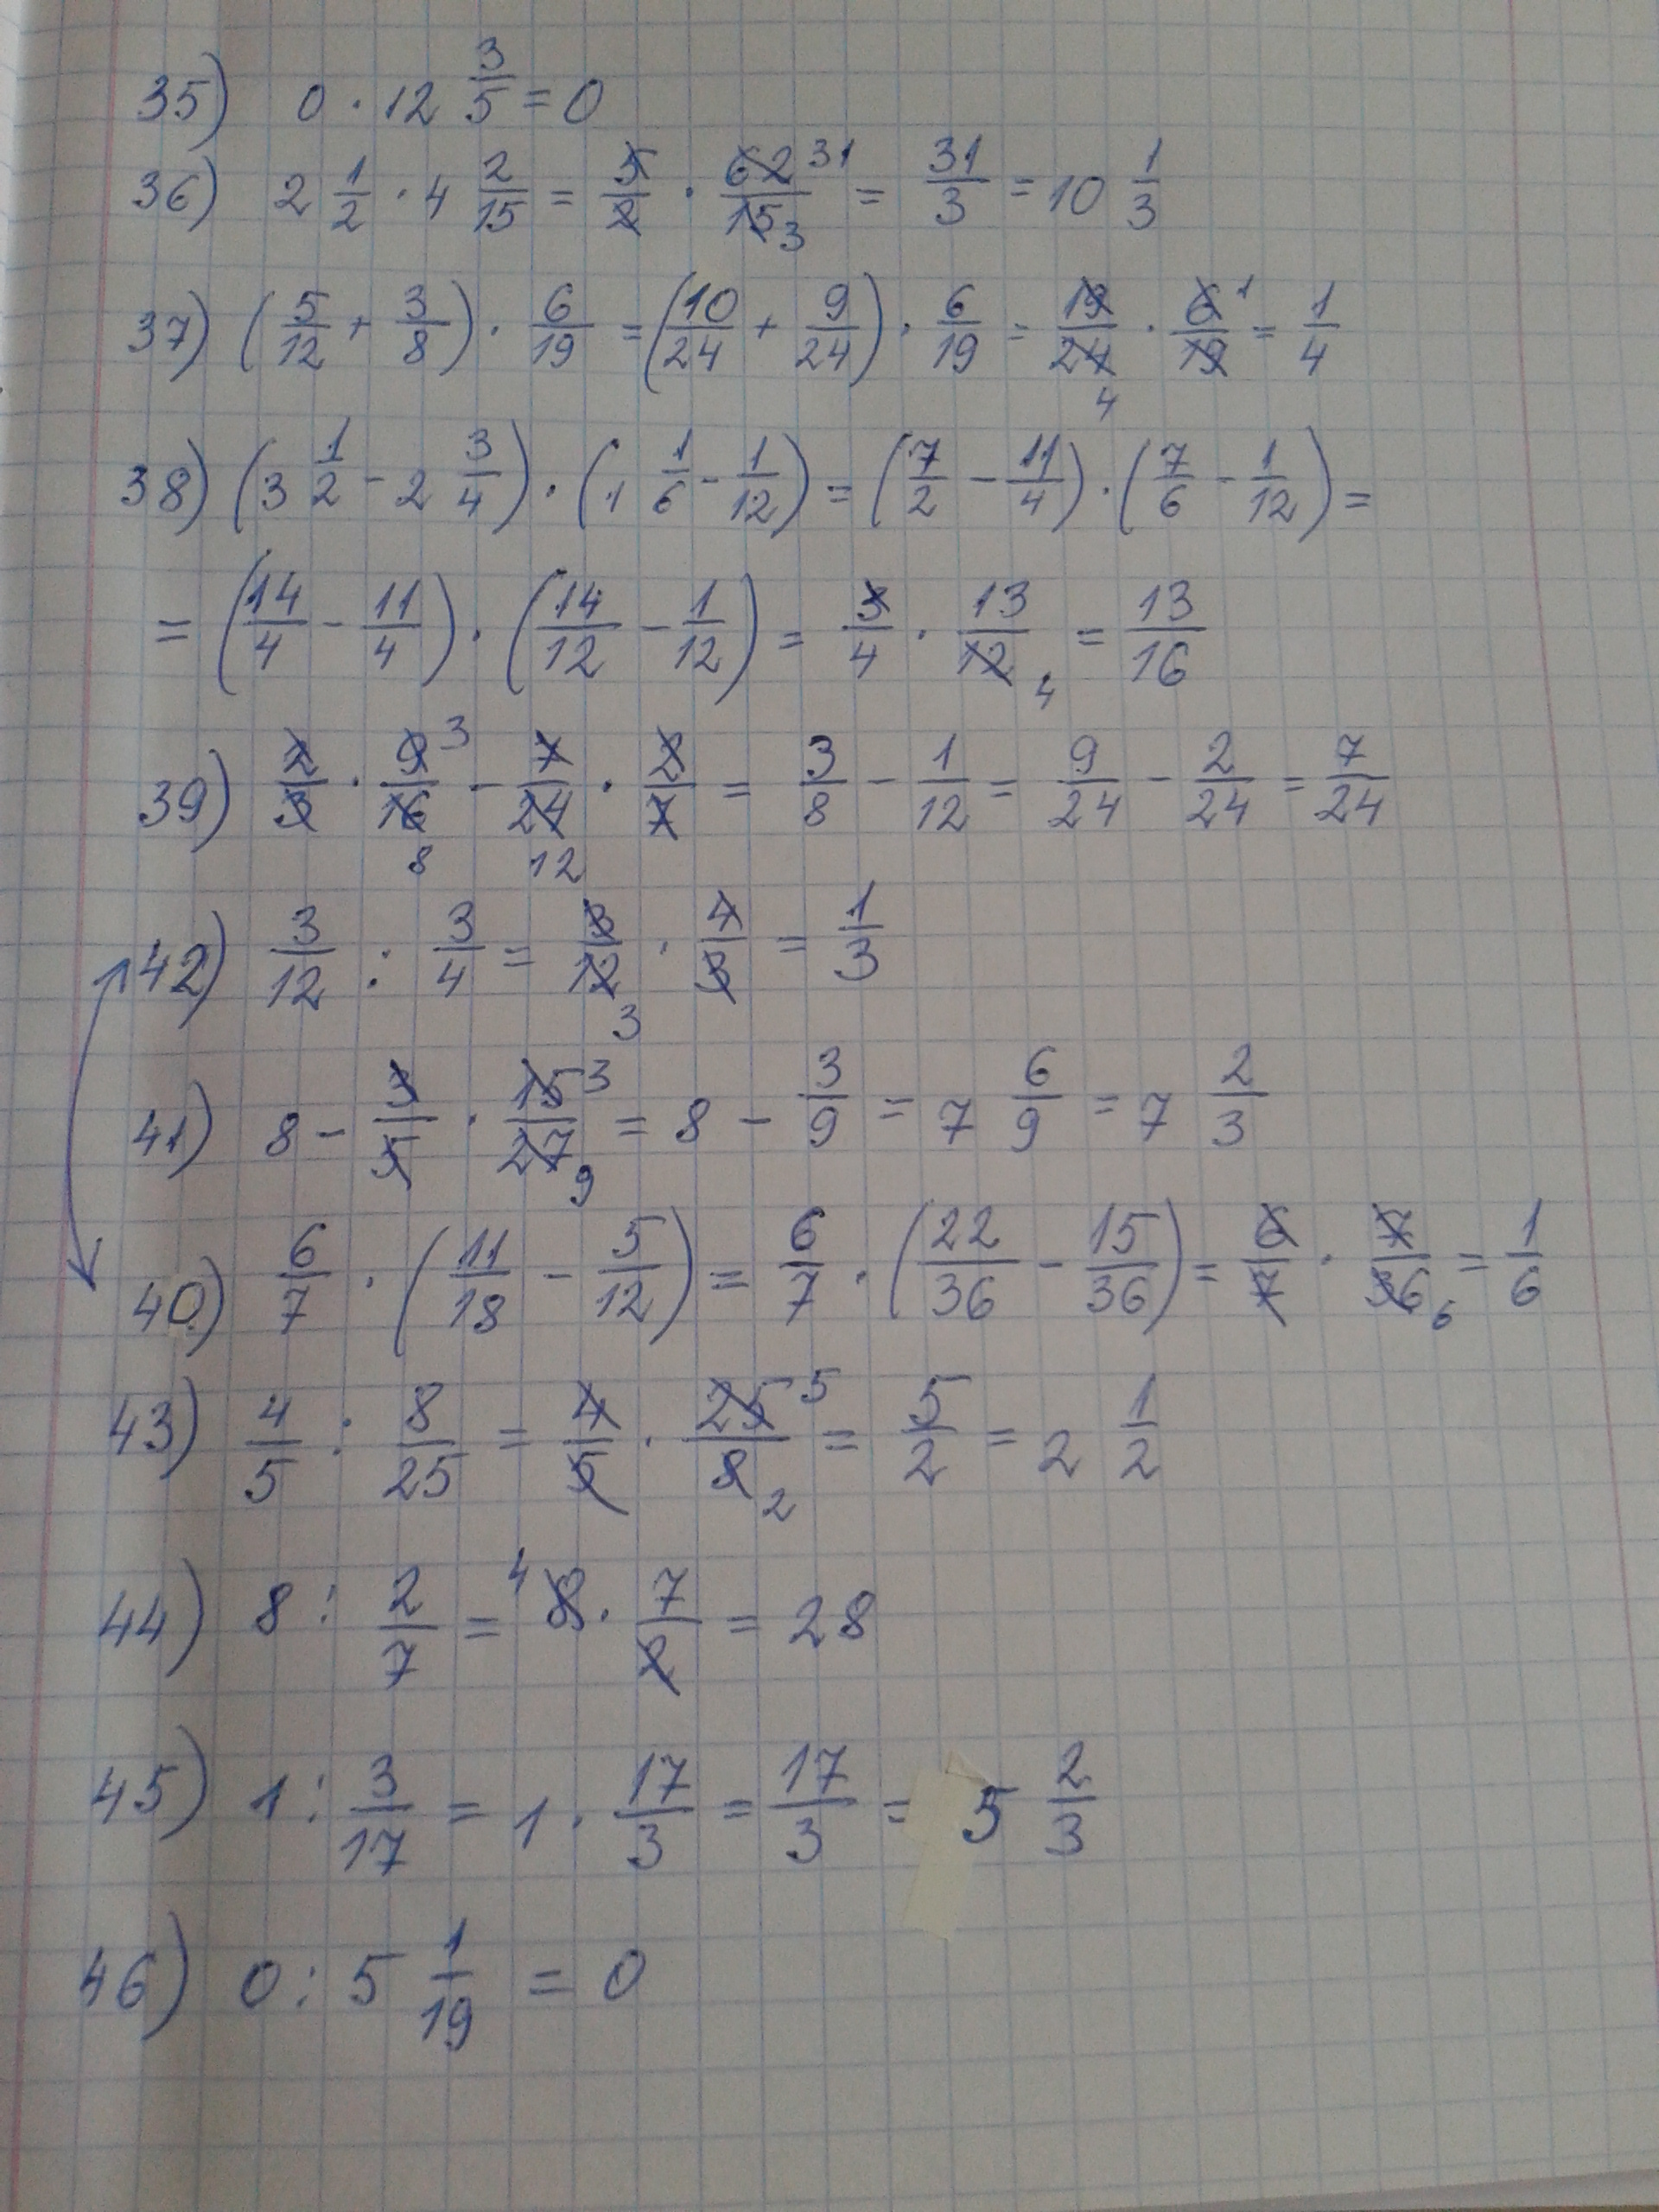 35) 0 · 12 3/5 = 0
36) 2 1/2 · 4 2/15 = 5/2 · 62/15 31 3 = 31/3 = 10 1/3
37) (5/12 + 3/8) · 6/19 = (10/24 + 9/24) · 6/19 = 19/24 4 · 6/19 1 = 1/4
38) (3 1/2 - 2 3/4) · (1 1/6 - 1/12) = (7/2 - 11/4) · (7/6 - 1/12) =
= (14/4 - 11/4) · (14/12 - 1/12) = 3/4 · 13/12 4 = 13/16
39) 2/3 · 9/16 3 8 - 7/24 12 · 2/7 = 3/8 - 1/12 = 9/24 - 2/24 = 7/24
42) 3/12 : 3/4 = 3/12 3 · 4/3 = 1/3
41) 8 - 3/5 · 15/27 3 9 = 8 - 3/9 = 7 6/9 = 7 2/3
40) 6/7 · (11/18 - 5/12) = 6/7 · (22/36 - 15/36) = 6/7 · 7/36 6 = 1/6
43) 4/5 : 8/25 = 4/5 · 25/8 5 2 = 5/2 = 2 1/2
44) 8 : 2/7 = 4 8 · 7/2 = 28
45) 1 : 3/17 = 1 · 17/3 = 17/3 = 5 2/3
46) 0 : 5 1/19 = 0